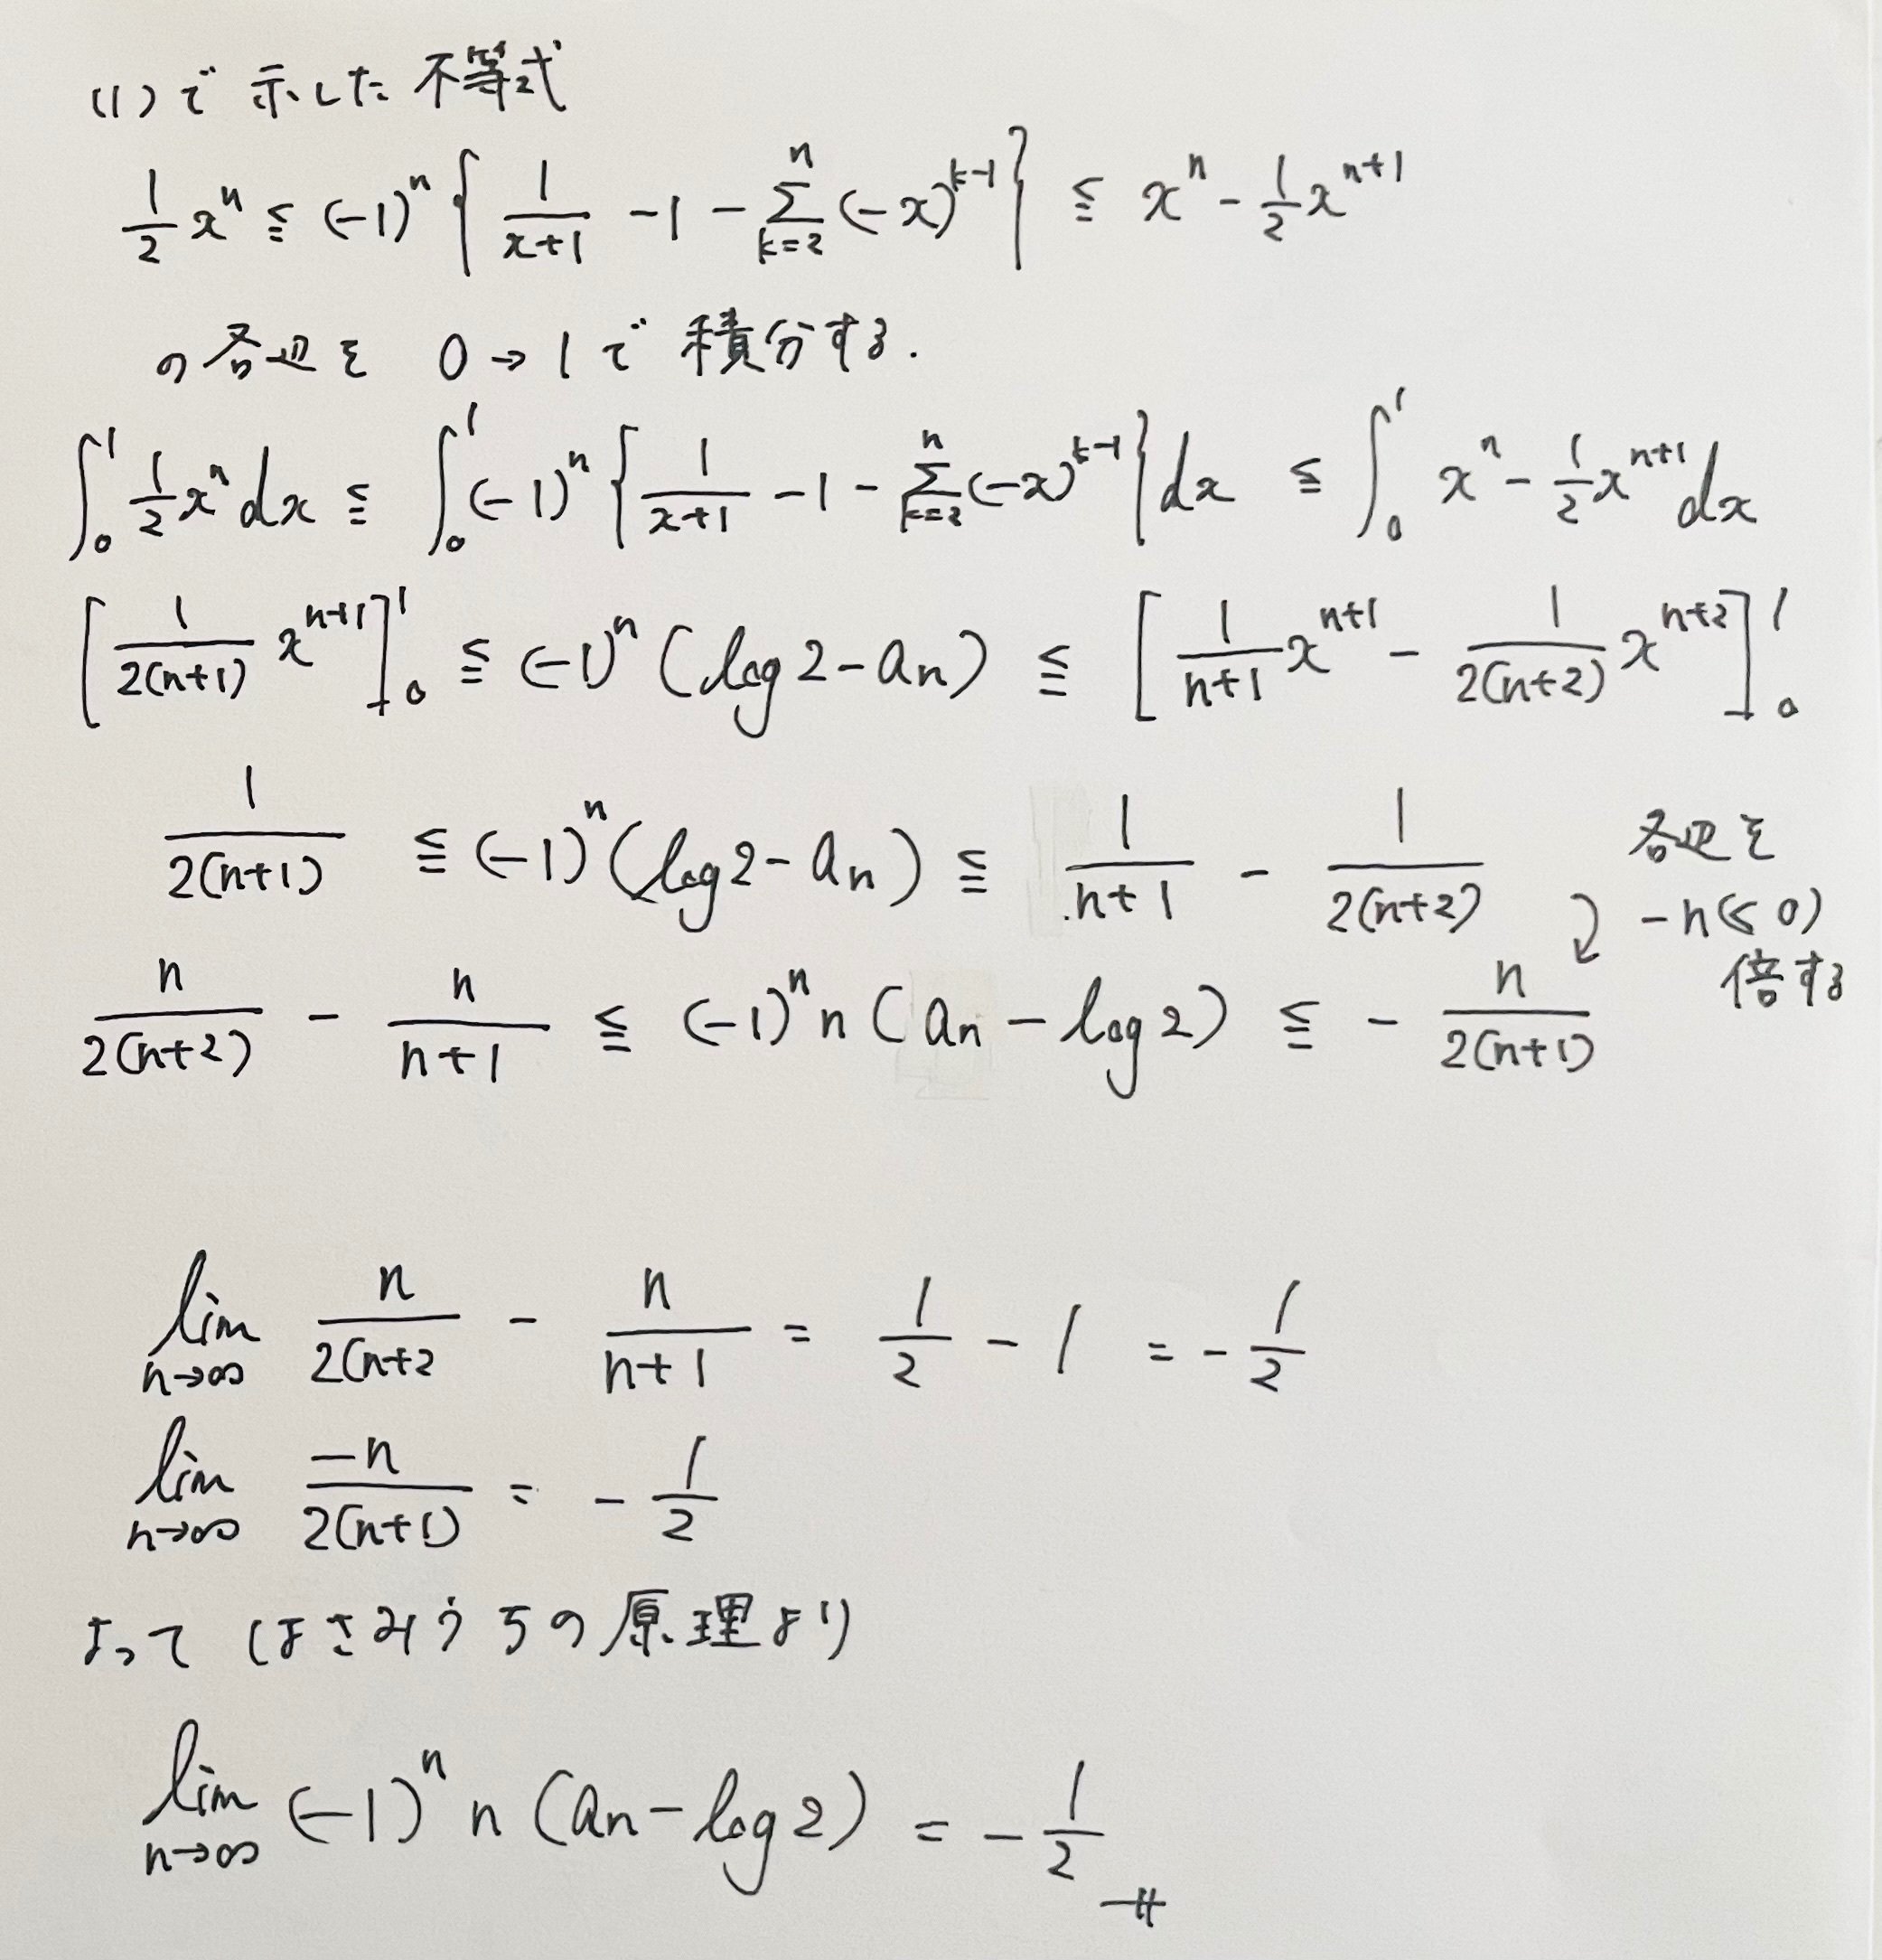 (1)で示した不等式
1/2 x^n ≦ (-1)^n { 1/(x+1) - 1 - Σ_{k=2}^{n} (-x)^{k-1} } ≦ x^n - 1/2 x^{n+1}
の各辺を 0→1で積分する.
∫_0^1 1/2 x^n dx ≦ ∫_0^1 (-1)^n { 1/(x+1) - 1 - Σ_{k=2}^{n} (-x)^{k-1} } dx ≦ ∫_0^1 x^n - 1/2 x^{n+1} dx
[ 1/(2(n+1)) x^{n+1} ]_0^1 ≦ (-1)^n (log 2 - a_n) ≦ [ 1/(n+1) x^{n+1} - 1/(2(n+2)) x^{n+2} ]_0^1
1/(2(n+1)) ≦ (-1)^n (log 2 - a_n) ≦ 1/(n+1) - 1/(2(n+2))
各辺を
-n(≦0)
倍する
n/(2(n+2)) - n/(n+1) ≦ (-1)^n n (a_n - log 2) ≦ - n/(2(n+1))
lim_{n→∞} n/(2(n+2 - n/(n+1) = 1/2 - 1 = - 1/2
lim_{n→∞} -n/(2(n+1)) = - 1/2
よって はさみうちの原理より
lim_{n→∞} (-1)^n n (a_n - log 2) = - 1/2